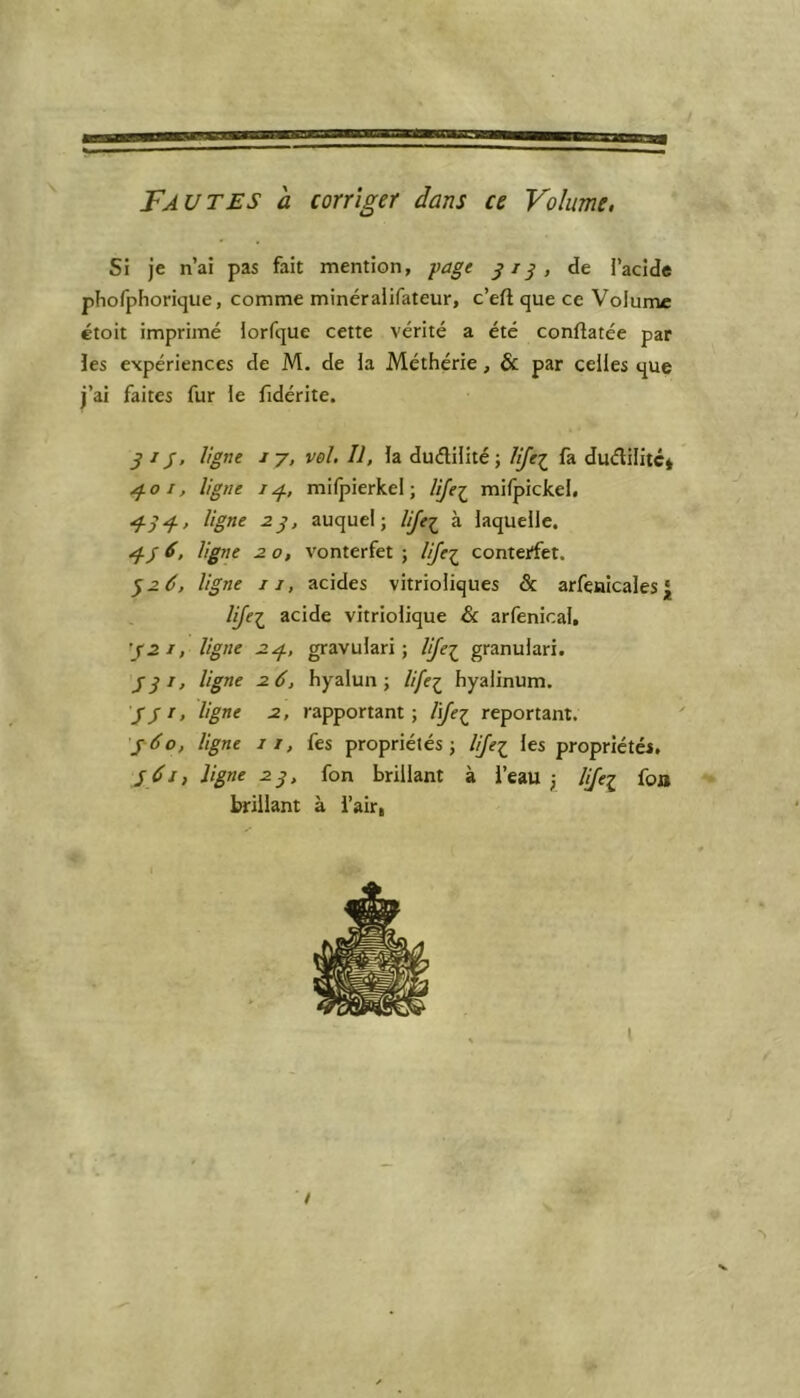 FAUTES à corriger dans ce Volume.
Si je n'ai pas fait mention, page 313, de l'acide
phoſphorique, comme minéraliſateur, c'eſt que ce Volume
étoit imprimé lorſque cette vérité a été conſtatée par
les expériences de M. de la Méthérie, & par celles que
j'ai faites ſur le ſidérite.
315, ligne 17, vol. II, la ductilité; liſez ſa ductilité.
401, ligne 14, miſpierkel; liſez miſpickel.
434, ligne 23, auquel; liſez à laquelle.
456, ligne 20, vonterfet; liſez conterfet.
526, ligne 11, acides vitrioliques & arſenicales;
liſez acide vitriolique & arſenical.
521, ligne 24, gravulari; liſez granulari.
531, ligne 26, hyalun; liſez hyalinum.
551, ligne 2, rapportant; liſez reportant.
560, ligne 11, ſes propriétés; liſez les propriétés.
561, ligne 23, ſon brillant à l'eau; liſez ſon
brillant à l'air.